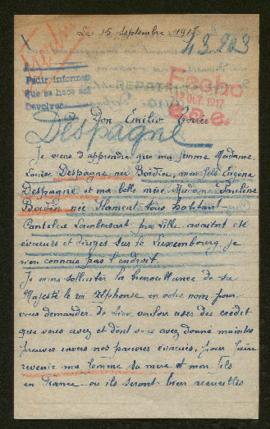 Le 15 Septembre 1917
43.203
Pedir informes
que se hace
Devolver
Fecho
OCT. 1917
Don Emilio
Despagne
Je viens d'apprendre que ma femme Madame
Louise Despagne née Boidin, mon fils Eugène
Despagne et ma belle mère Madame Pauline
Boidin née tous habitant
Canteleu Lambersart par Lille, avaient été
évacués et dirigés sur le Luxembourg, je
n'en connais pas l'endroit.
Je viens solliciter la bienveillance de sa
Majesté le roi Alphonse en votre nom pour
vous demander de bien vouloir user du crédit
que vous avez et dont vous avez donné maintes
preuves envers nos pauvres évacués, pour faire
revenir ma femme sa mère et mon fils
en France où ils seront bien recueillis